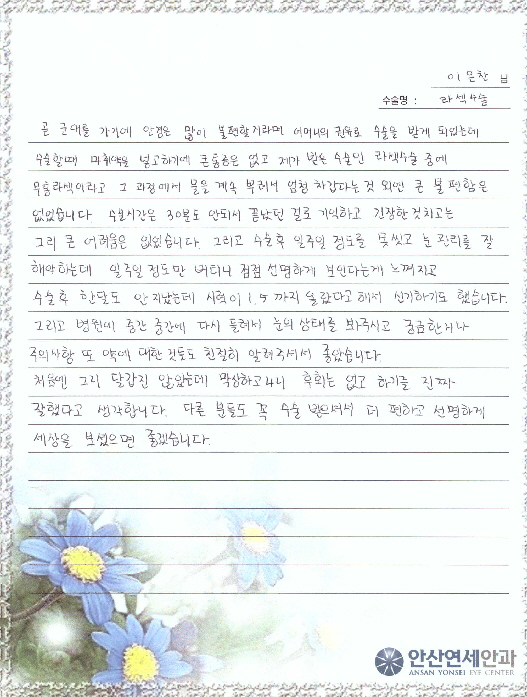 이문찬 님
수술명 : 라섹수술
곧 군대를 가기에 안경은 많이 불편할거라며 어머니의 권유로 수술을 받게 되었는데
수술할때 마취약을 넣고하기에 큰통증은 없고 제가 받은 수술인 라섹수술 중에
무통라섹이라고 그 과정에서 물을 계속 뿌려서 엄청 차갑다는 것 외엔 큰 불편함은
없었습니다 수술시간은 30분도 안되서 끝났던 걸로 기억하고 긴장한것치고는
그리 큰 어려움은 없었습니다. 그리고 수술후 일주일 정도를 못씻고 눈관리를 잘
해야하는데 일주일 정도만 버티니 점점 선명하게 보인다는게 느껴지고
수술후 한달도 안지났는데 시력이 1.5 까지 올랐다고해서 신기하기도 했습니다.
그리고 병원에 중간 중간에 다시 들려서 눈의 상태를 봐주시고 궁금한거나
주의사항 또 약에 대한것들도 친절히 알려주셔서 좋았습니다.
처음엔 그리 달갑진 않았는데 막상하고나니 후회는 없고 하기를 진짜
잘했다고 생각합니다. 다른 분들도 꼭 수술 받으셔서 더 편하고 선명하게
세상을 보셨으면 좋겠습니다.
안산연세안과
ANSAN YONSEI EYE CENTER